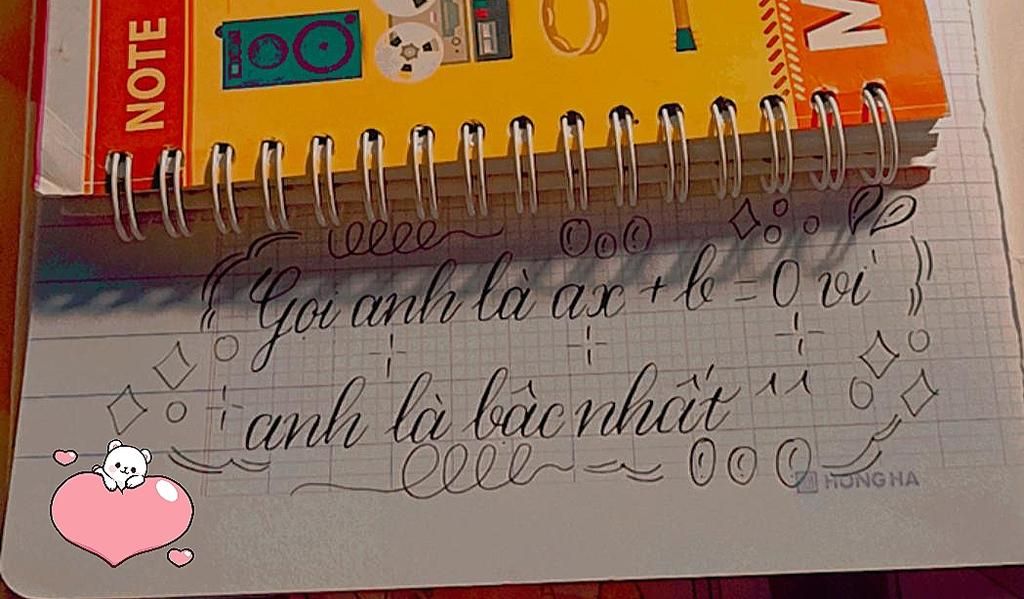 NOTE
M
Gọi anh là ax + b = 0 vì
anh là bậc nhất ^^
HONG HA